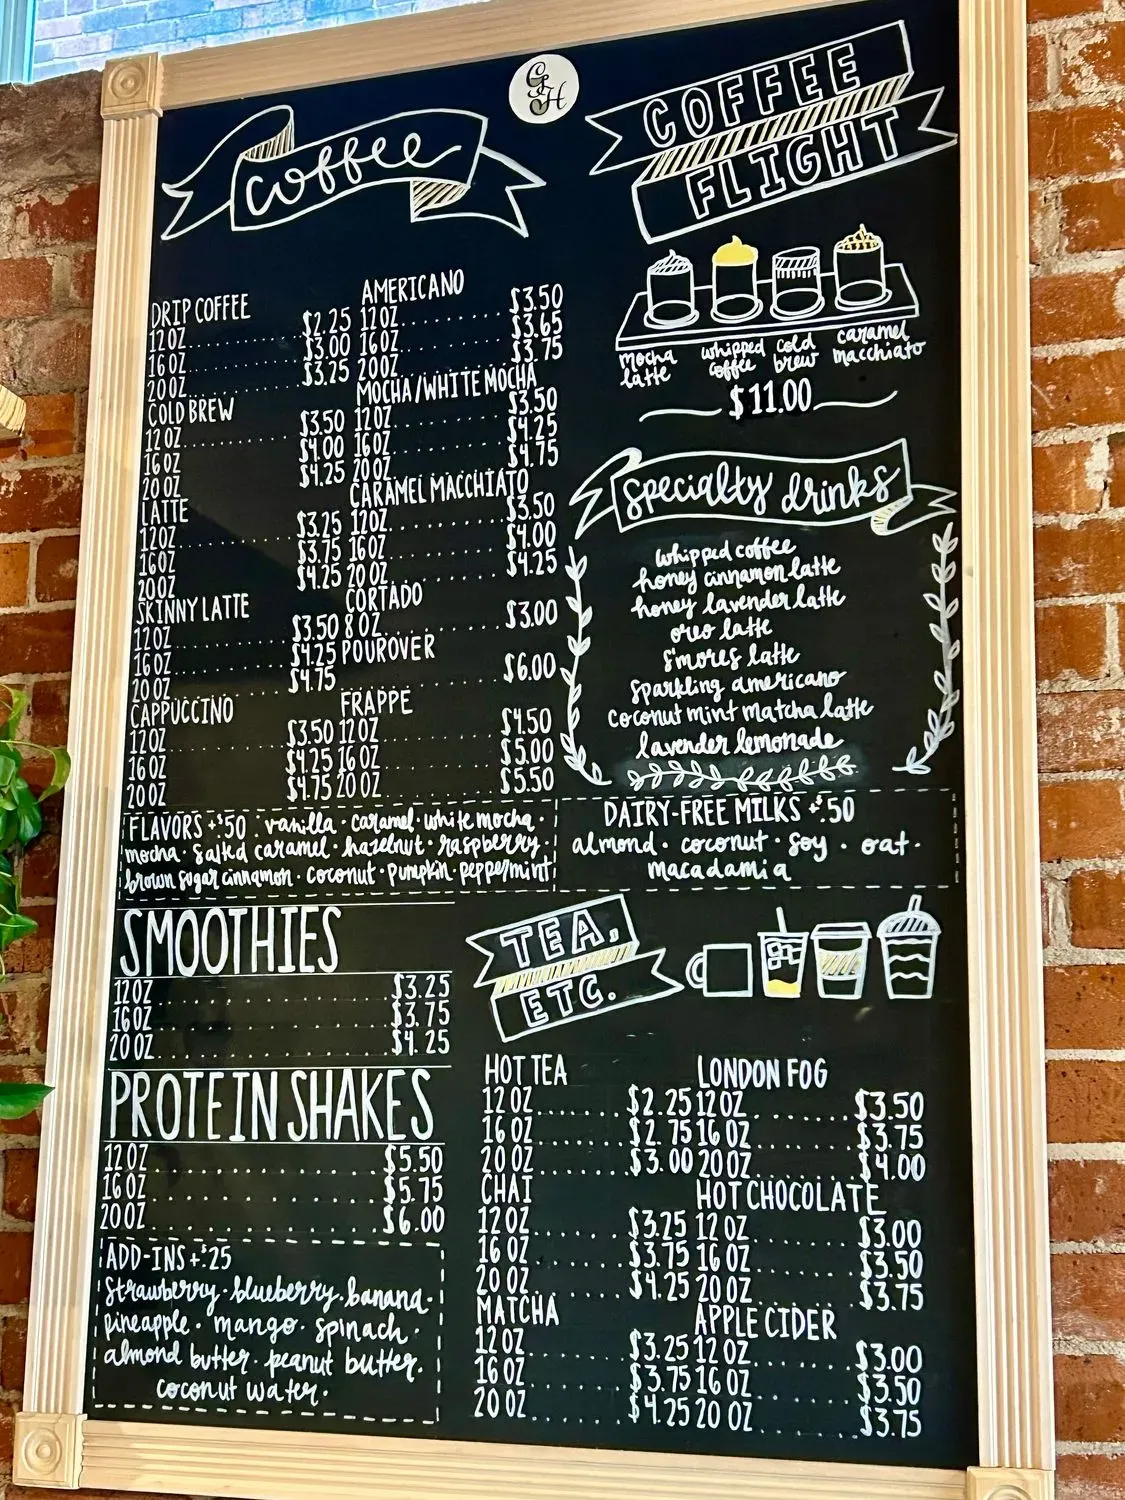 G H
coffee
DRIP COFFEE
12 OZ............$2.25
16 OZ............$3.00
20 OZ............$3.25
COLD BREW
12 OZ............$3.50
16 OZ............$4.00
20 OZ............$4.25
LATTE
12 OZ............$3.25
16 OZ............$3.75
20 OZ............$4.25
SKINNY LATTE
12 OZ............$3.50
16 OZ............$4.25
20 OZ............$4.75
CAPPUCCINO
12 OZ............$3.50
16 OZ............$4.25
20 OZ............$4.75
AMERICANO
12 OZ............$3.50
16 OZ............$3.65
20 OZ............$3.75
MOCHA/WHITE MOCHA
12 OZ............$3.50
16 OZ............$4.25
20 OZ............$4.75
CARAMEL MACCHIATO
12 OZ............$3.50
16 OZ............$4.00
20 OZ............$4.25
CORTADO
8 OZ............$3.00
POUROVER
............$6.00
FRAPPE
12 OZ............$4.50
16 OZ............$5.00
20 OZ............$5.50
COFFEE
FLIGHT
mocha latte
whipped coffee
cold brew
caramel macchiato
$11.00
specialty drinks
whipped coffee
honey cinnamon latte
honey lavender latte
oreo latte
s'mores latte
sparkling americano
coconut mint matcha latte
lavender lemonade
FLAVORS +$.50 : vanilla · caramel · white mocha ·
mocha · salted caramel · hazelnut · raspberry ·
brown sugar cinnamon · coconut · pumpkin · peppermint
DAIRY-FREE MILKS +$.50
almond · coconut · soy · oat ·
macadamia
SMOOTHIES
12 OZ............$3.25
16 OZ............$3.75
20 OZ............$4.25
PROTEIN SHAKES
12 OZ............$5.50
16 OZ............$5.75
20 OZ............$6.00
ADD-INS +$.25
strawberry · blueberry · banana ·
pineapple · mango · spinach ·
almond butter · peanut butter ·
coconut water ·
TEA,
ETC.
HOT TEA
12 OZ............$2.25
16 OZ............$2.75
20 OZ............$3.00
CHAI
12 OZ............$3.25
16 OZ............$3.75
20 OZ............$4.25
MATCHA
12 OZ............$3.25
16 OZ............$3.75
20 OZ............$4.25
LONDON FOG
12 OZ............$3.50
16 OZ............$3.75
20 OZ............$4.00
HOT CHOCOLATE
12 OZ............$3.00
16 OZ............$3.50
20 OZ............$3.75
APPLE CIDER
12 OZ............$3.00
16 OZ............$3.50
20 OZ............$3.75